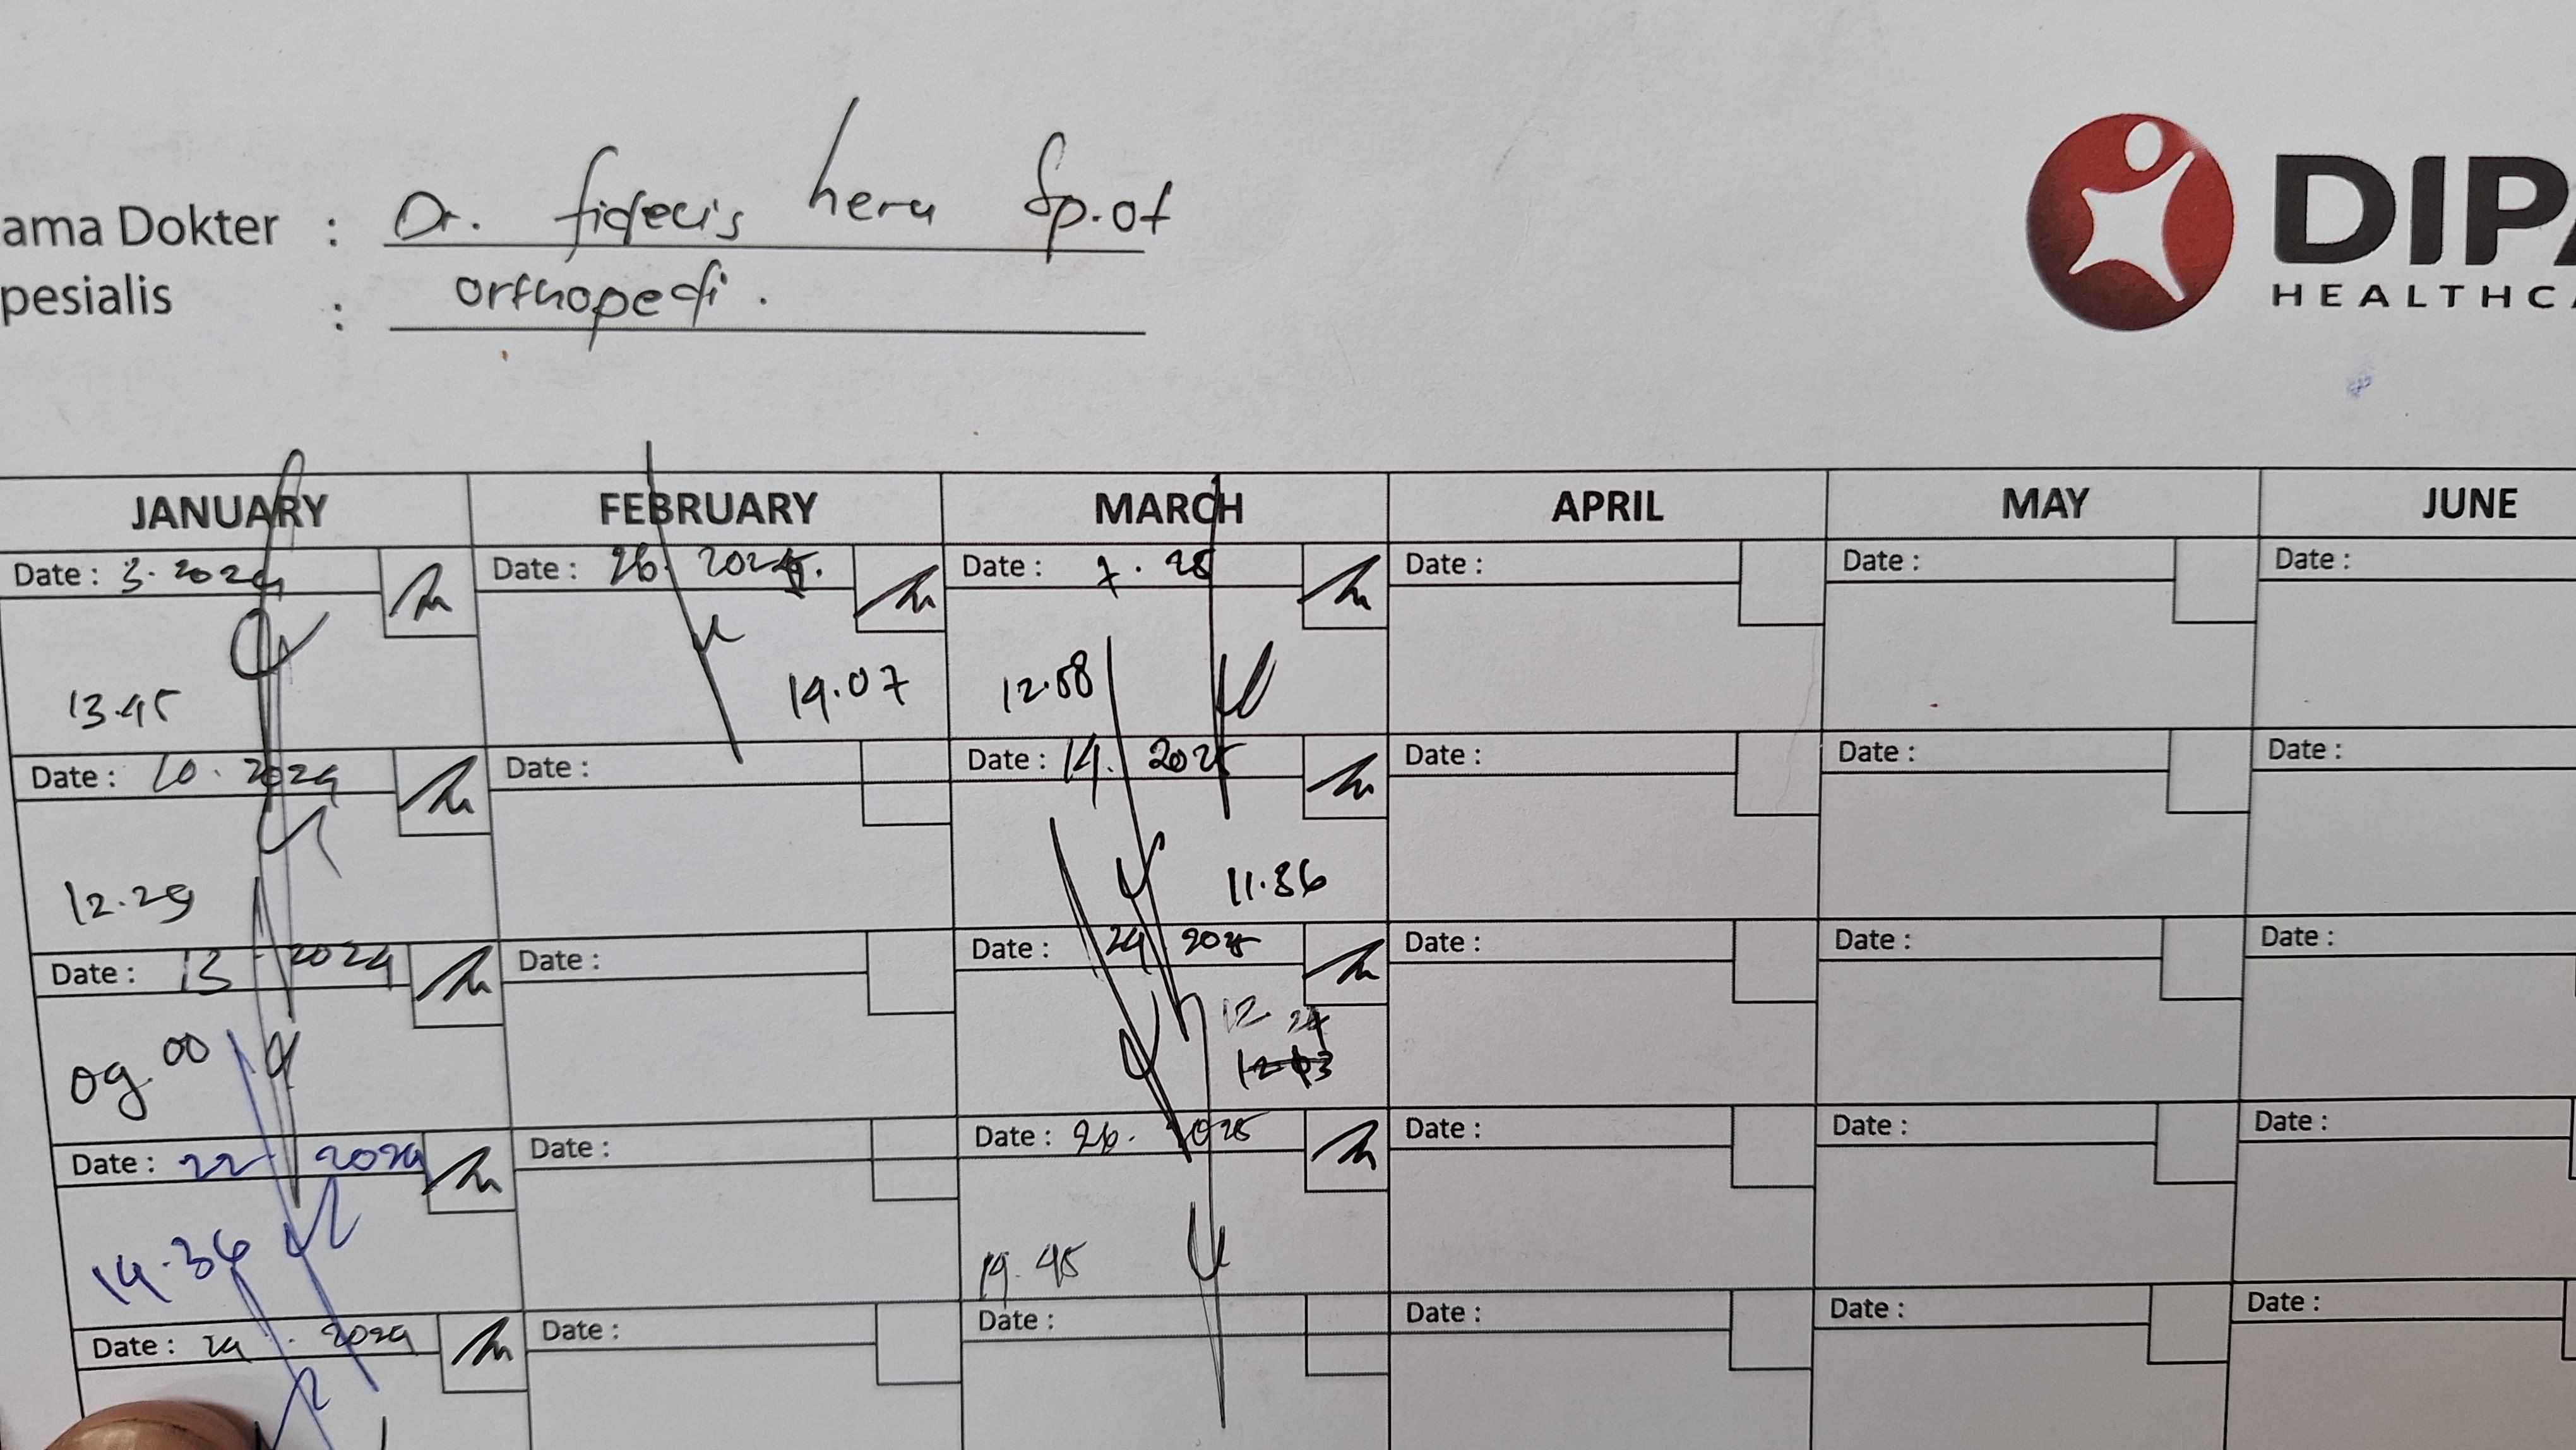 ama Dokter : Dr. fidecis hera Sp.ot
pesialis : orthopedi.
DIPA
HEALTHCA
JANUARY FEBRUARY MARCH APRIL MAY JUNE
Date : 3. 2024 Date : 26. 2025. Date : 7. 25 Date : Date : Date :
13.45 19.07 12.58
Date : 10. 2024 Date : Date : 14. 2025 Date : Date : Date :
12.29 11.36
Date : 13. 2024 Date : Date : 24 2025 Date : Date : Date :
09.00 12 24
Date : 22 2024 Date : Date : 26. 2025 Date : Date : Date :
14.36 19.45
Date : 24. 2024 Date : Date : Date : Date : Date :